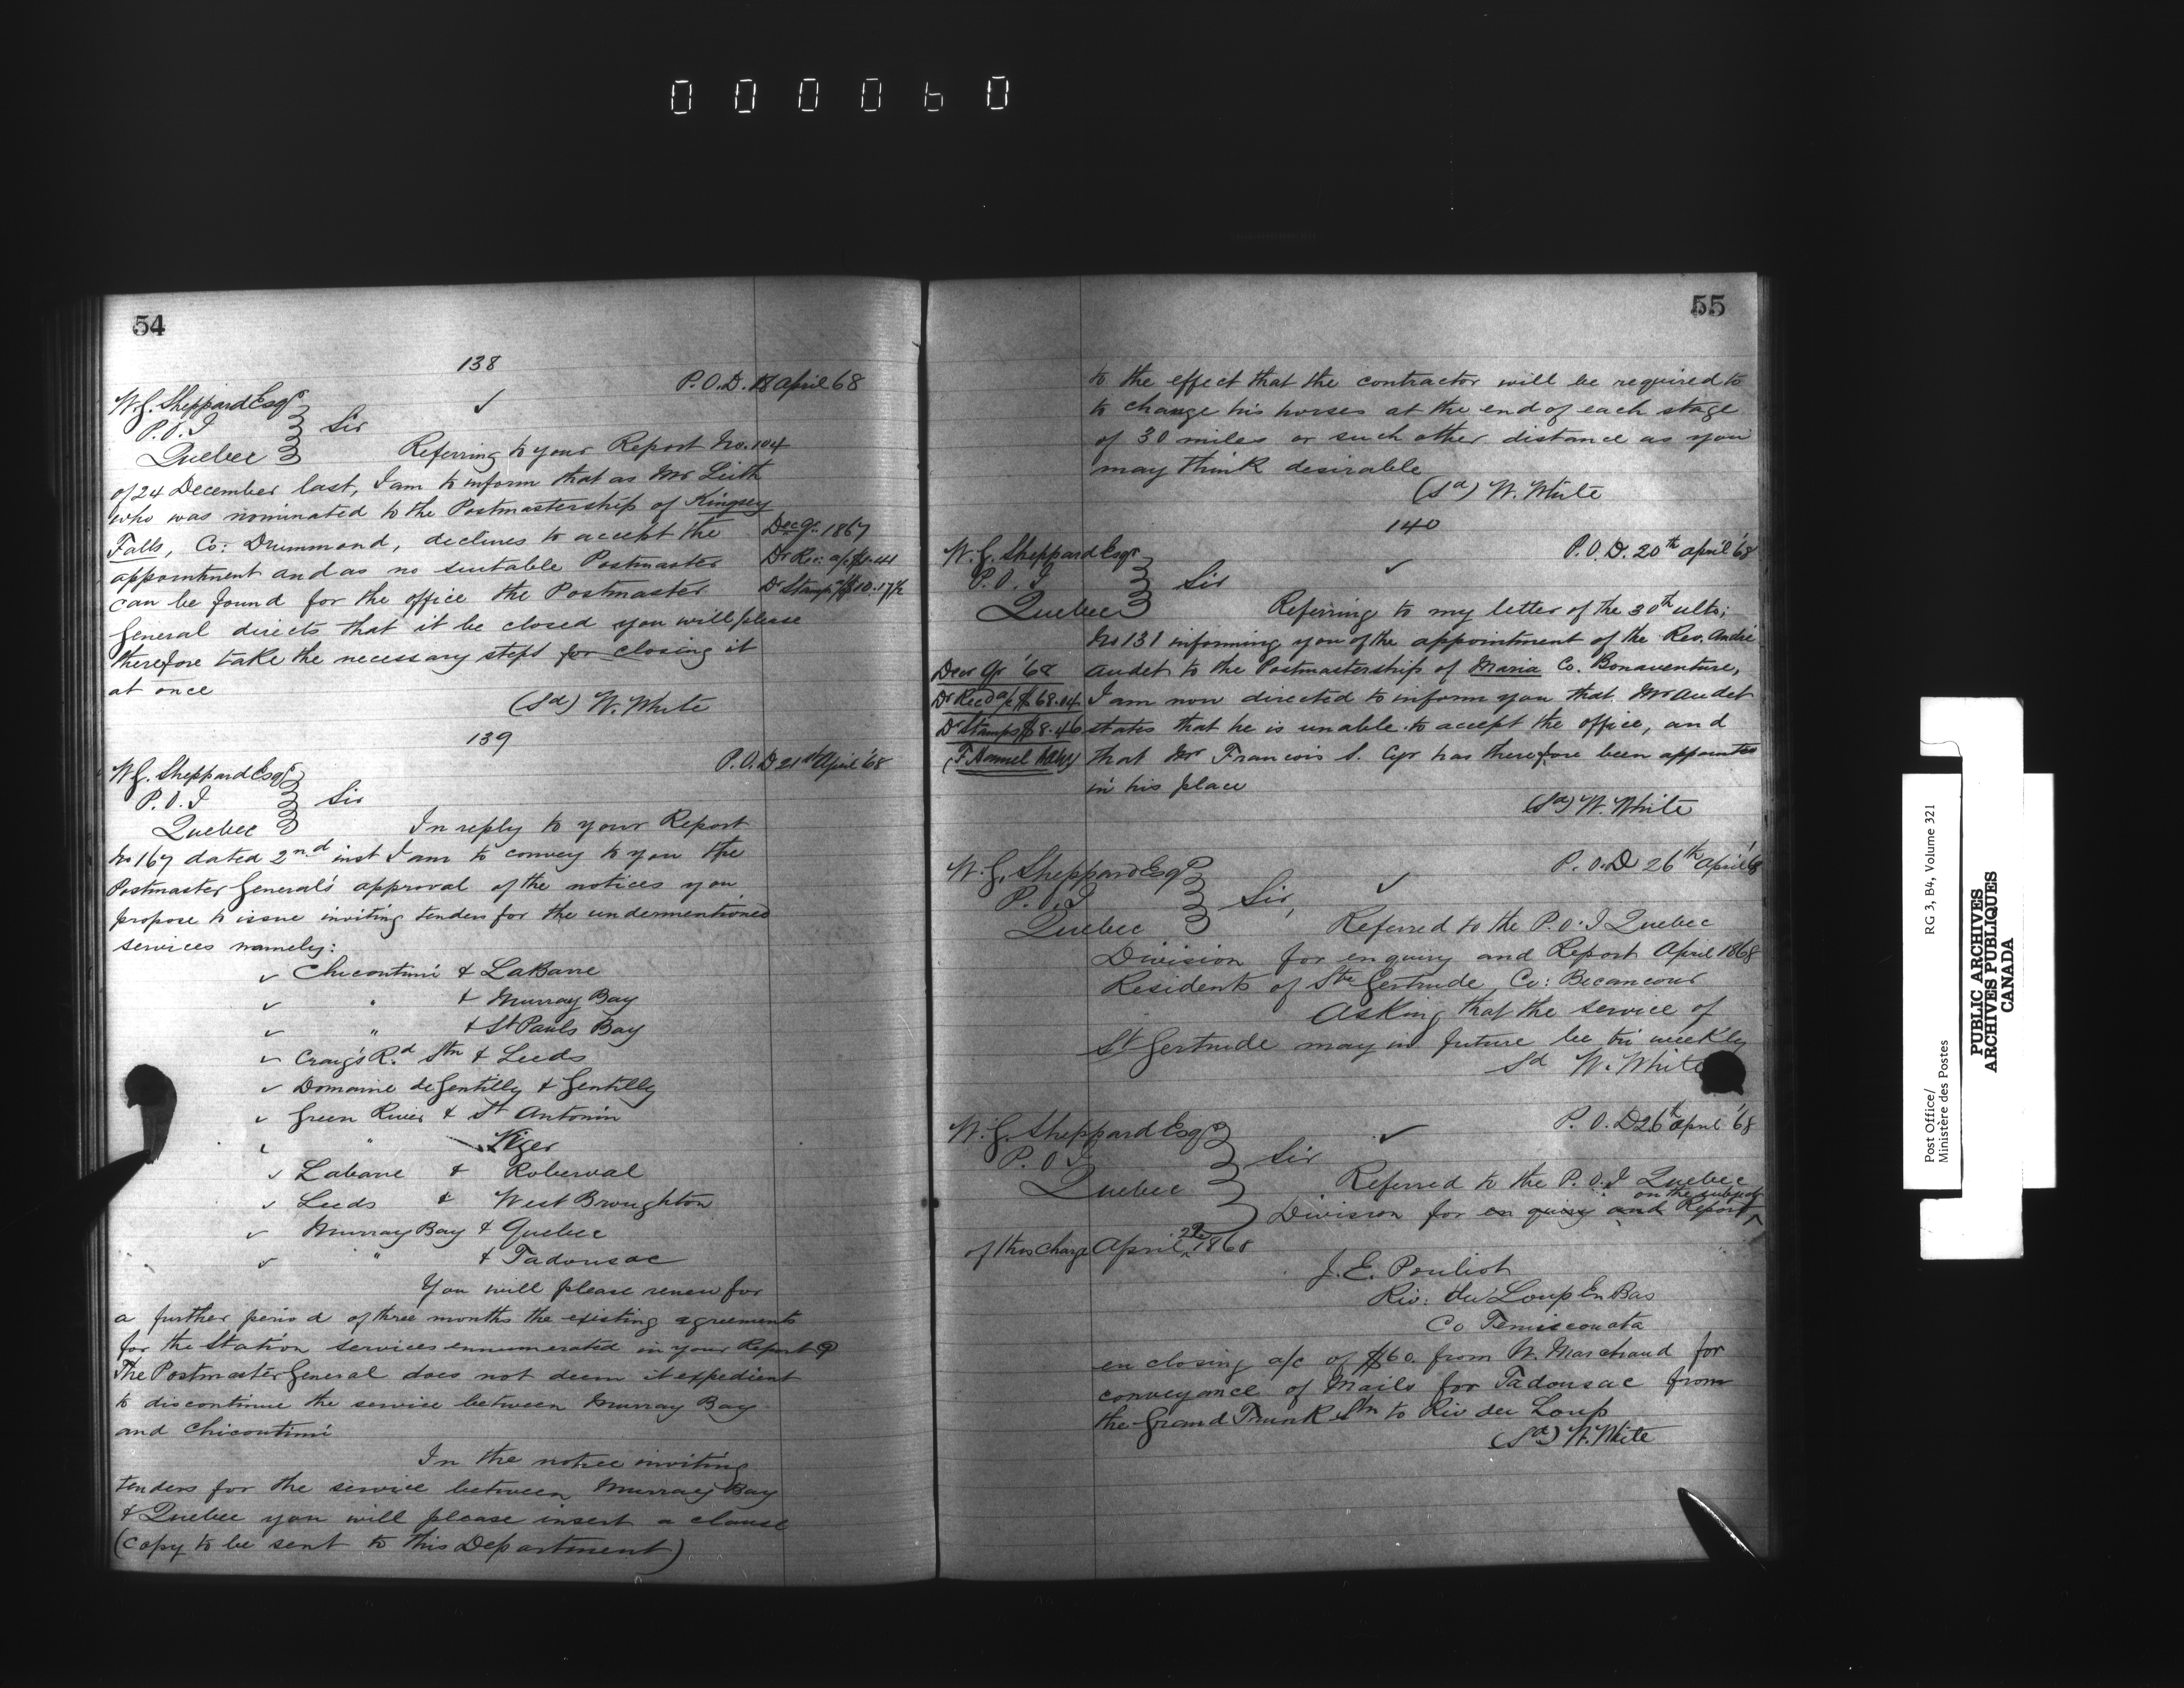 000060
54
138
P.O.D. 18 April 68
W.G. Sheppard Esqr
P.O.I
Sir
Quebec
Referring to your Report No. 104
of 24 December last, I am to inform that as Mr Leith
who was nominated to the Postmastership of Kingsey
Falls, Co: Drummond, declines to accept the
Dec Qr. 1867
appointment and as no suitable Postmaster
Dr Rev: a/c
can be found for the office the Postmaster
Dr Stamp $10.17½
General directs that it be closed you will please
therefore take the necessary steps for closing it
at once
(Sd) W. White
139
P.O.D 21st April '68
W.G. Sheppard Esqr
P.O.I
Sir
Quebec
In reply to your Report
No 167 dated 2nd inst I am to convey to you the
Postmaster General's approval of the notices you
propose to issue inviting tenders for the undermentioned
services namely:
✓ Chicoutimi & LaBarre
✓ " & Murray Bay
✓ " & St Pauls Bay
✓ Craig's Rd Stn & Leeds
✓ Domaine de Gentilly & Gentilly
✓ Green River & St Antonin
✓ " Viger
✓ Labarre & Roberval
✓ Leeds & West Broughton
✓ Murray Bay & Quebec
✓ " & Tadousac
You will please renew for
a further period of three months the existing agreements
for the Station services ennumerated in your Report
The Postmaster General does not deem it expedient
to discontinue the service between Murray Bay
and Chicoutimi
In the notice inviting
tenders for the service between Murray Bay
& Quebec you will please insert a clause
(copy to be sent to this Department)
55
to the effect that the contractor will be required to
to change his horses at the end of each stage
of 30 miles or such other distance as you
may think desirable
(Sd) W. White
140
P.O.D. 20th April '68
W.G. Sheppard Esqr
P.O.I
Sir
Quebec
Referring to my letter of the 30th ulto;
No 131 informing you of the appointment of the Rev. André
Audet to the Postmastership of Maria Co. Bonaventure,
Decr Qr '68
I am now directed to inform you that Mr Audet
Dr Recd a/c $68.04
states that he is unable to accept the office, and
Dr Stamps $8.46
that Mr Francois S. Cyr has therefore been appointed
(F Hamel
in his place
(Sd) W. White
P.O.D 26th April '68
W.G. Sheppard Esqr
P.O.I
Sir,
Quebec
Referred to the P.O.I Quebec
Division for enquiry and Report April 1868
Residents of Ste Gertrude, Co: Becancour
Asking that the service of
St Gertrude may in future be tri weekly
Sd W. White
P.O.D 26th April '68
W.G. Sheppard Esqr
P.O.I
Sir
Quebec
Referred to the P.O.I Quebec
on the subject
Division for en quiry and Report
of this charge April 1868
J.E. Pouliot
Riv: du Loup En Bas
Co Temiscouata
en closing a/c of $60. from W. Marchand for
conveyance of Mails for Tadousac from
the Grand Trunk Stn to Riv du Loup
(Sd) W. White
Post Office/
Ministère des Postes
RG 3, B4, Volume 321
PUBLIC ARCHIVES
ARCHIVES PUBLIQUES
CANADA